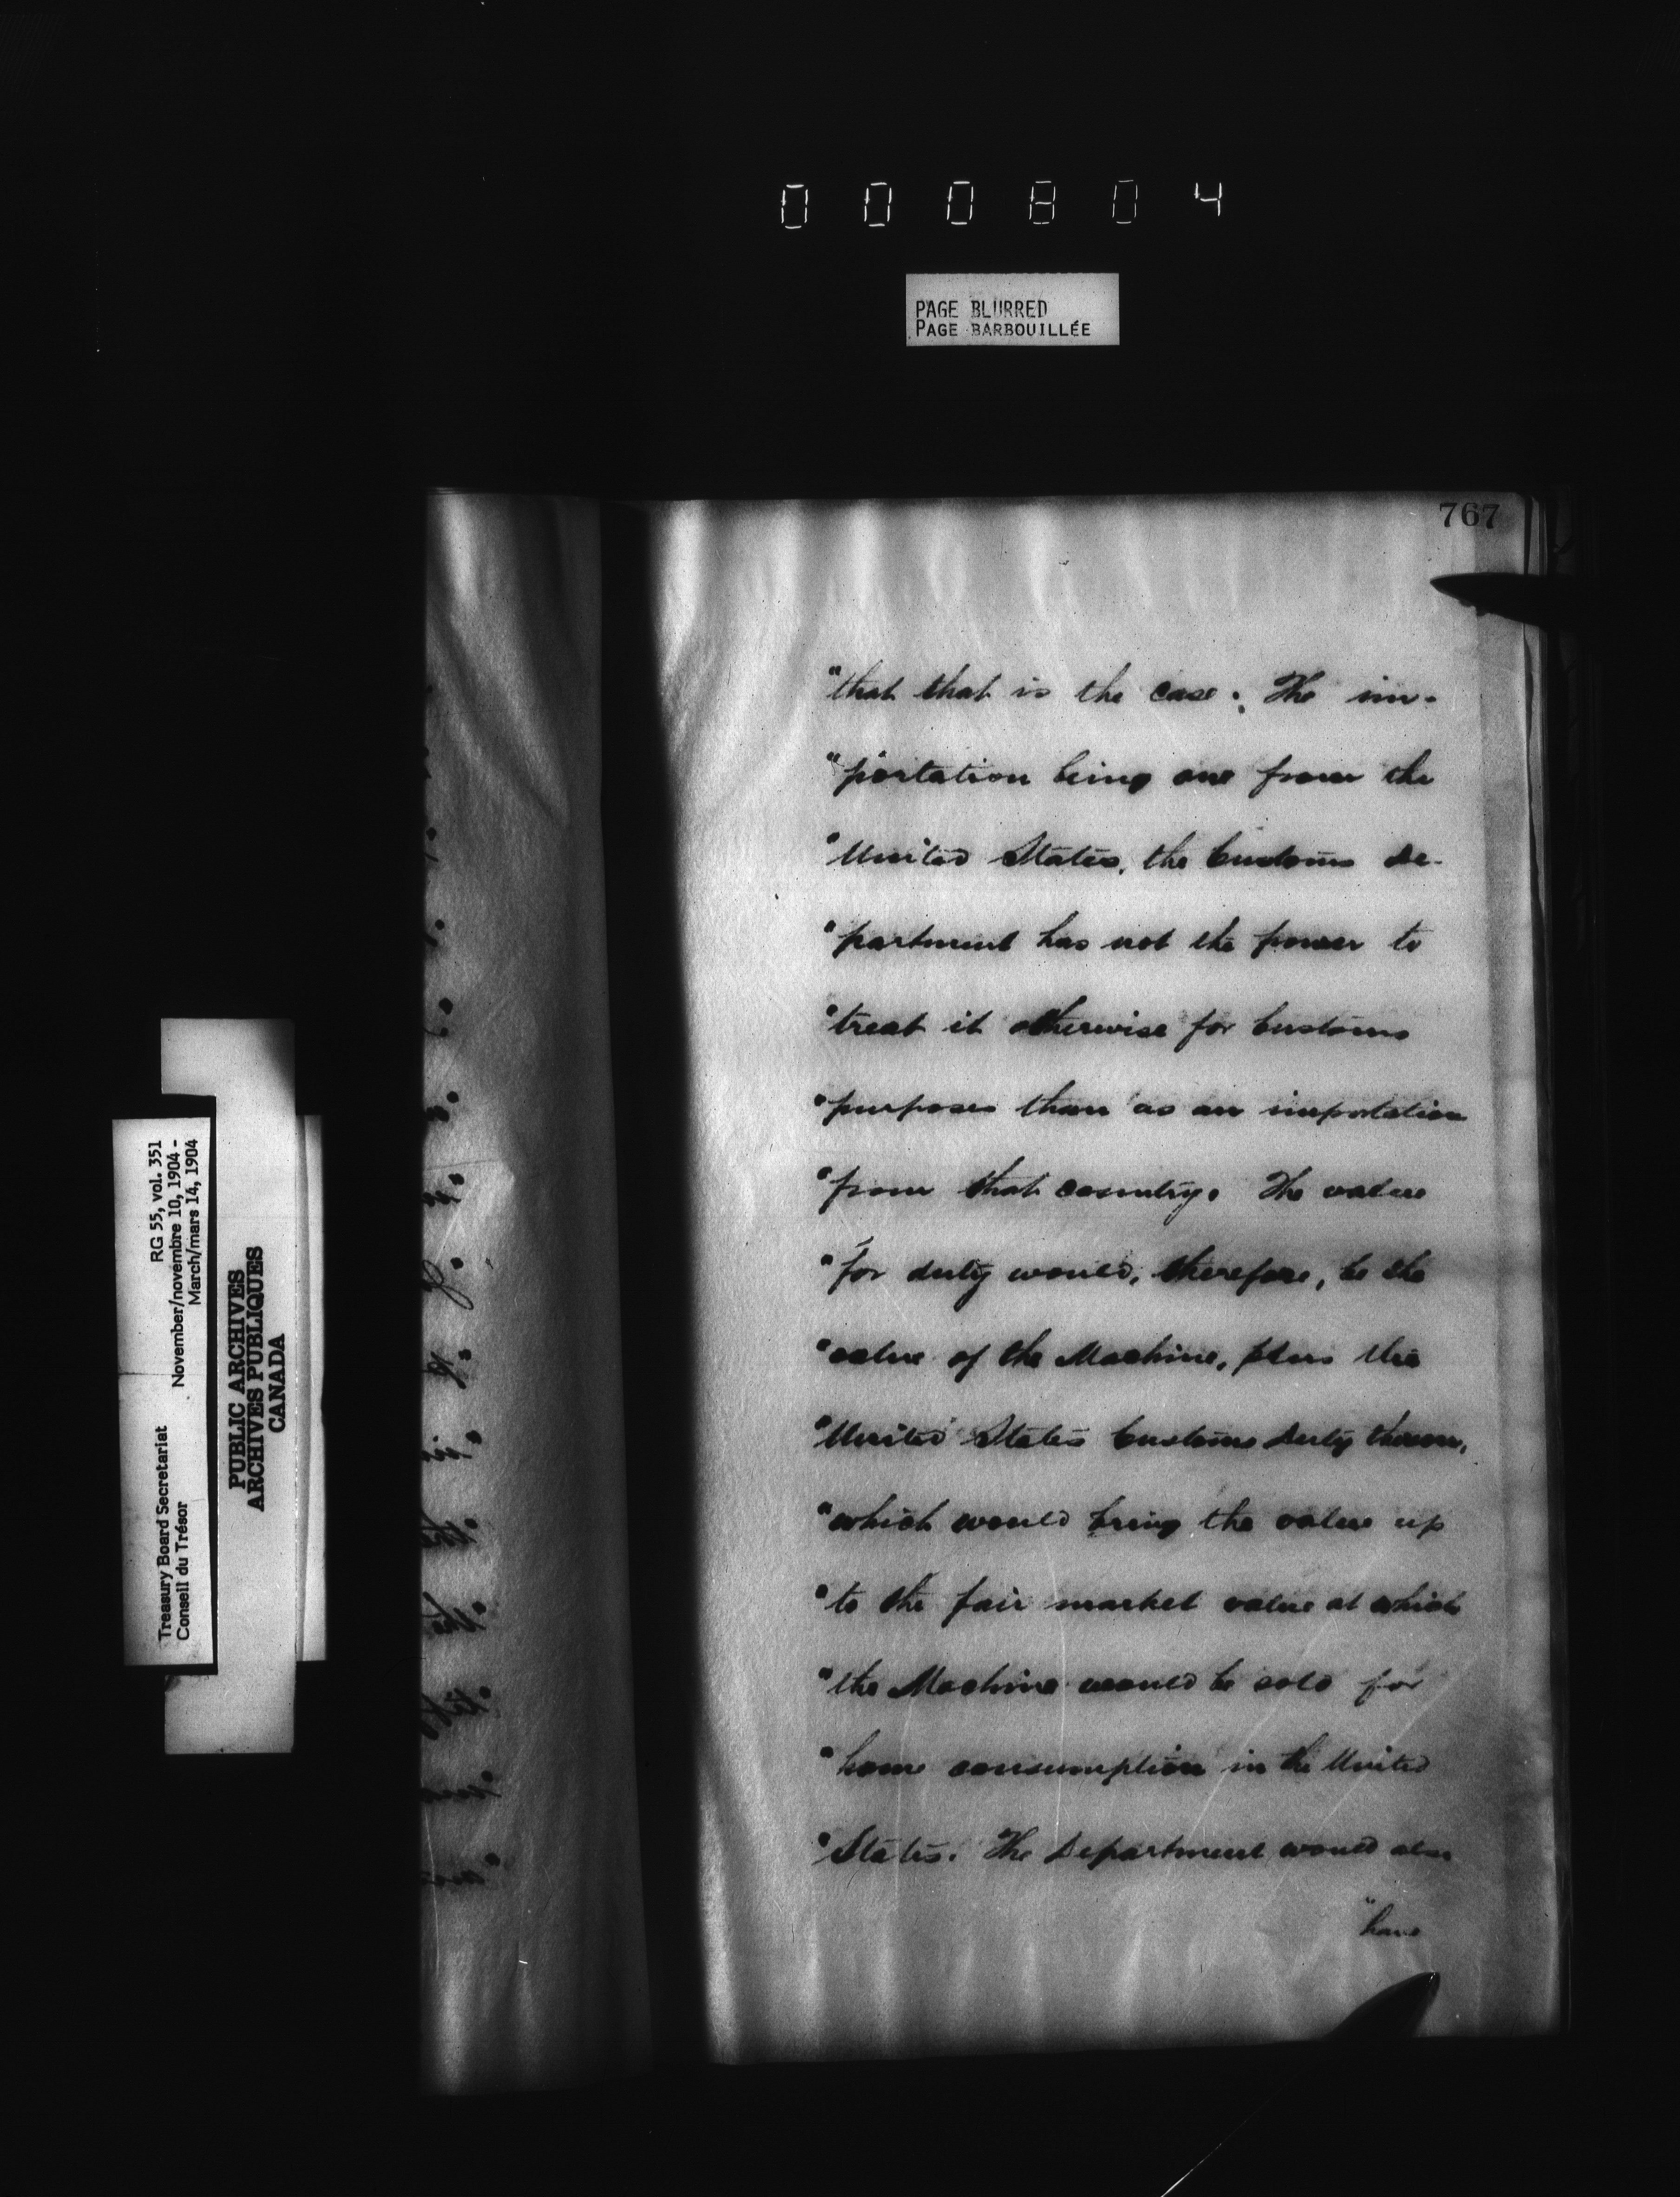 000804
PAGE BLURRED
PAGE BARBOUILLÉE
767
"that that is the case: The im-
"portation being one from the
"United States, the Customs De-
"partment has not the power to
"treat it otherwise for Customs
"purposes than as an importation
"from that country. The value
"for duty would, therefore, be the
"value of the Machine, plus the
"United States Customs Duty thereon,
"which would bring the value up
"to the fair market value at which
"the Machine would be sold for
"home consumption in the United
"States. The Department would also
"have
Treasury Board Secretariat RG 55, vol. 351
Conseil du Trésor November/novembre 10, 1904 -
March/mars 14, 1904
PUBLIC ARCHIVES
ARCHIVES PUBLIQUES
CANADA